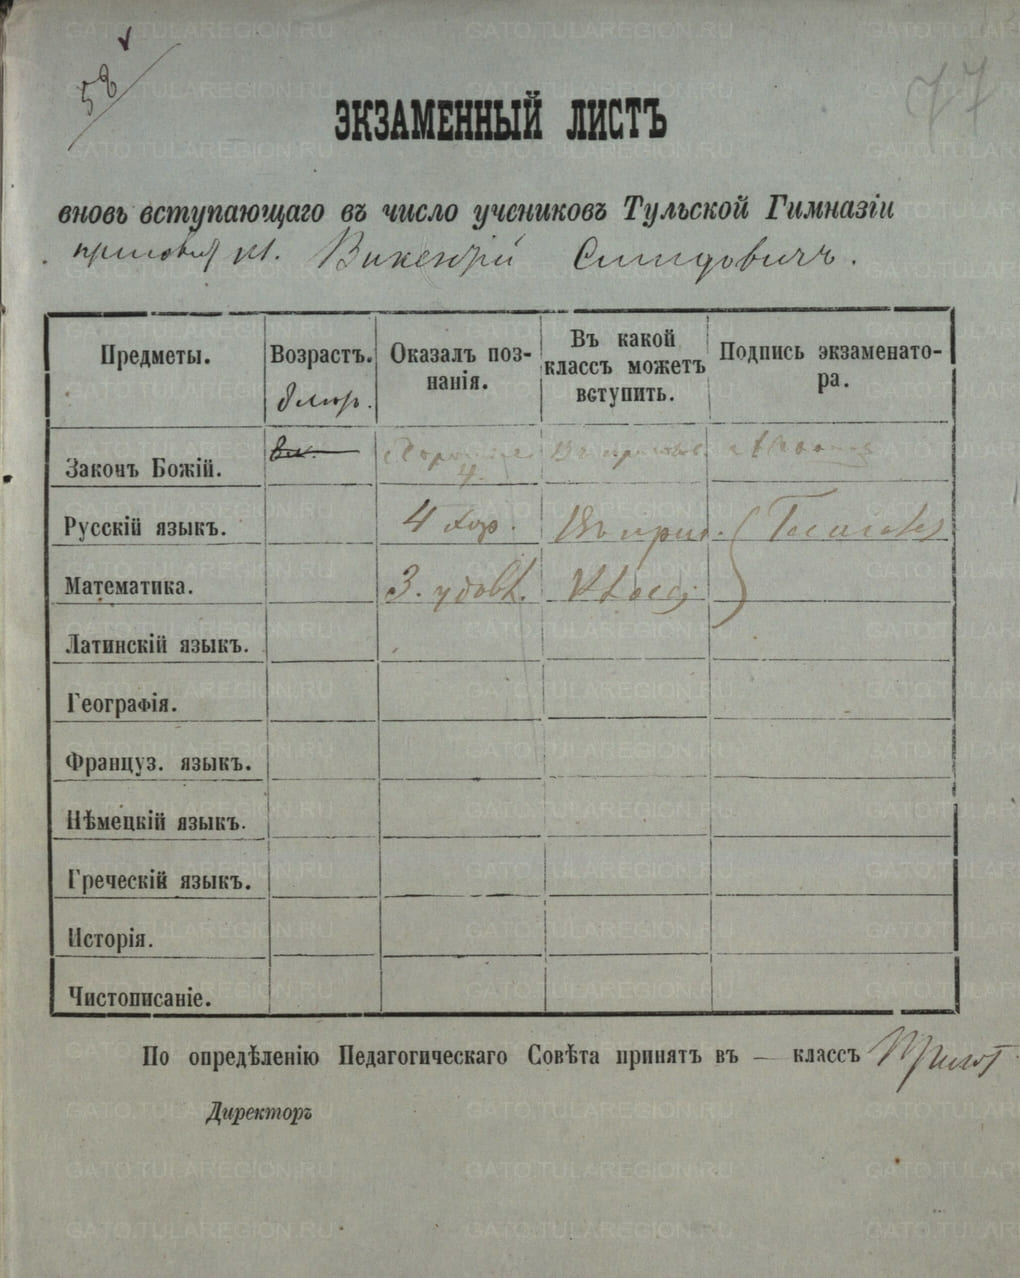 58
77
ЭКЗАМЕННЫЙ ЛИСТЪ
вновь вступающаго въ число учениковъ Тульской Гимназіи
кл. Викентій Смидовичъ.
Предметы. Возрастъ. Оказалъ поз-нанія. Въ какой классъ можетъ вступить. Подпись экзаменато-ра.
Законъ Божій. Хорошія 4.
Русскій языкъ. 4 хор. Въ приг.
Математика. 3. удовл. классъ
Латинскій языкъ.
Географія.
Француз. языкъ.
Нѣмецкій языкъ.
Греческій языкъ.
Исторія.
Чистописаніе.
По опредѣленію Педагогическаго Совѣта принятъ въ — классъ Пригот
Директоръ
GATO.TULAREGION.RU